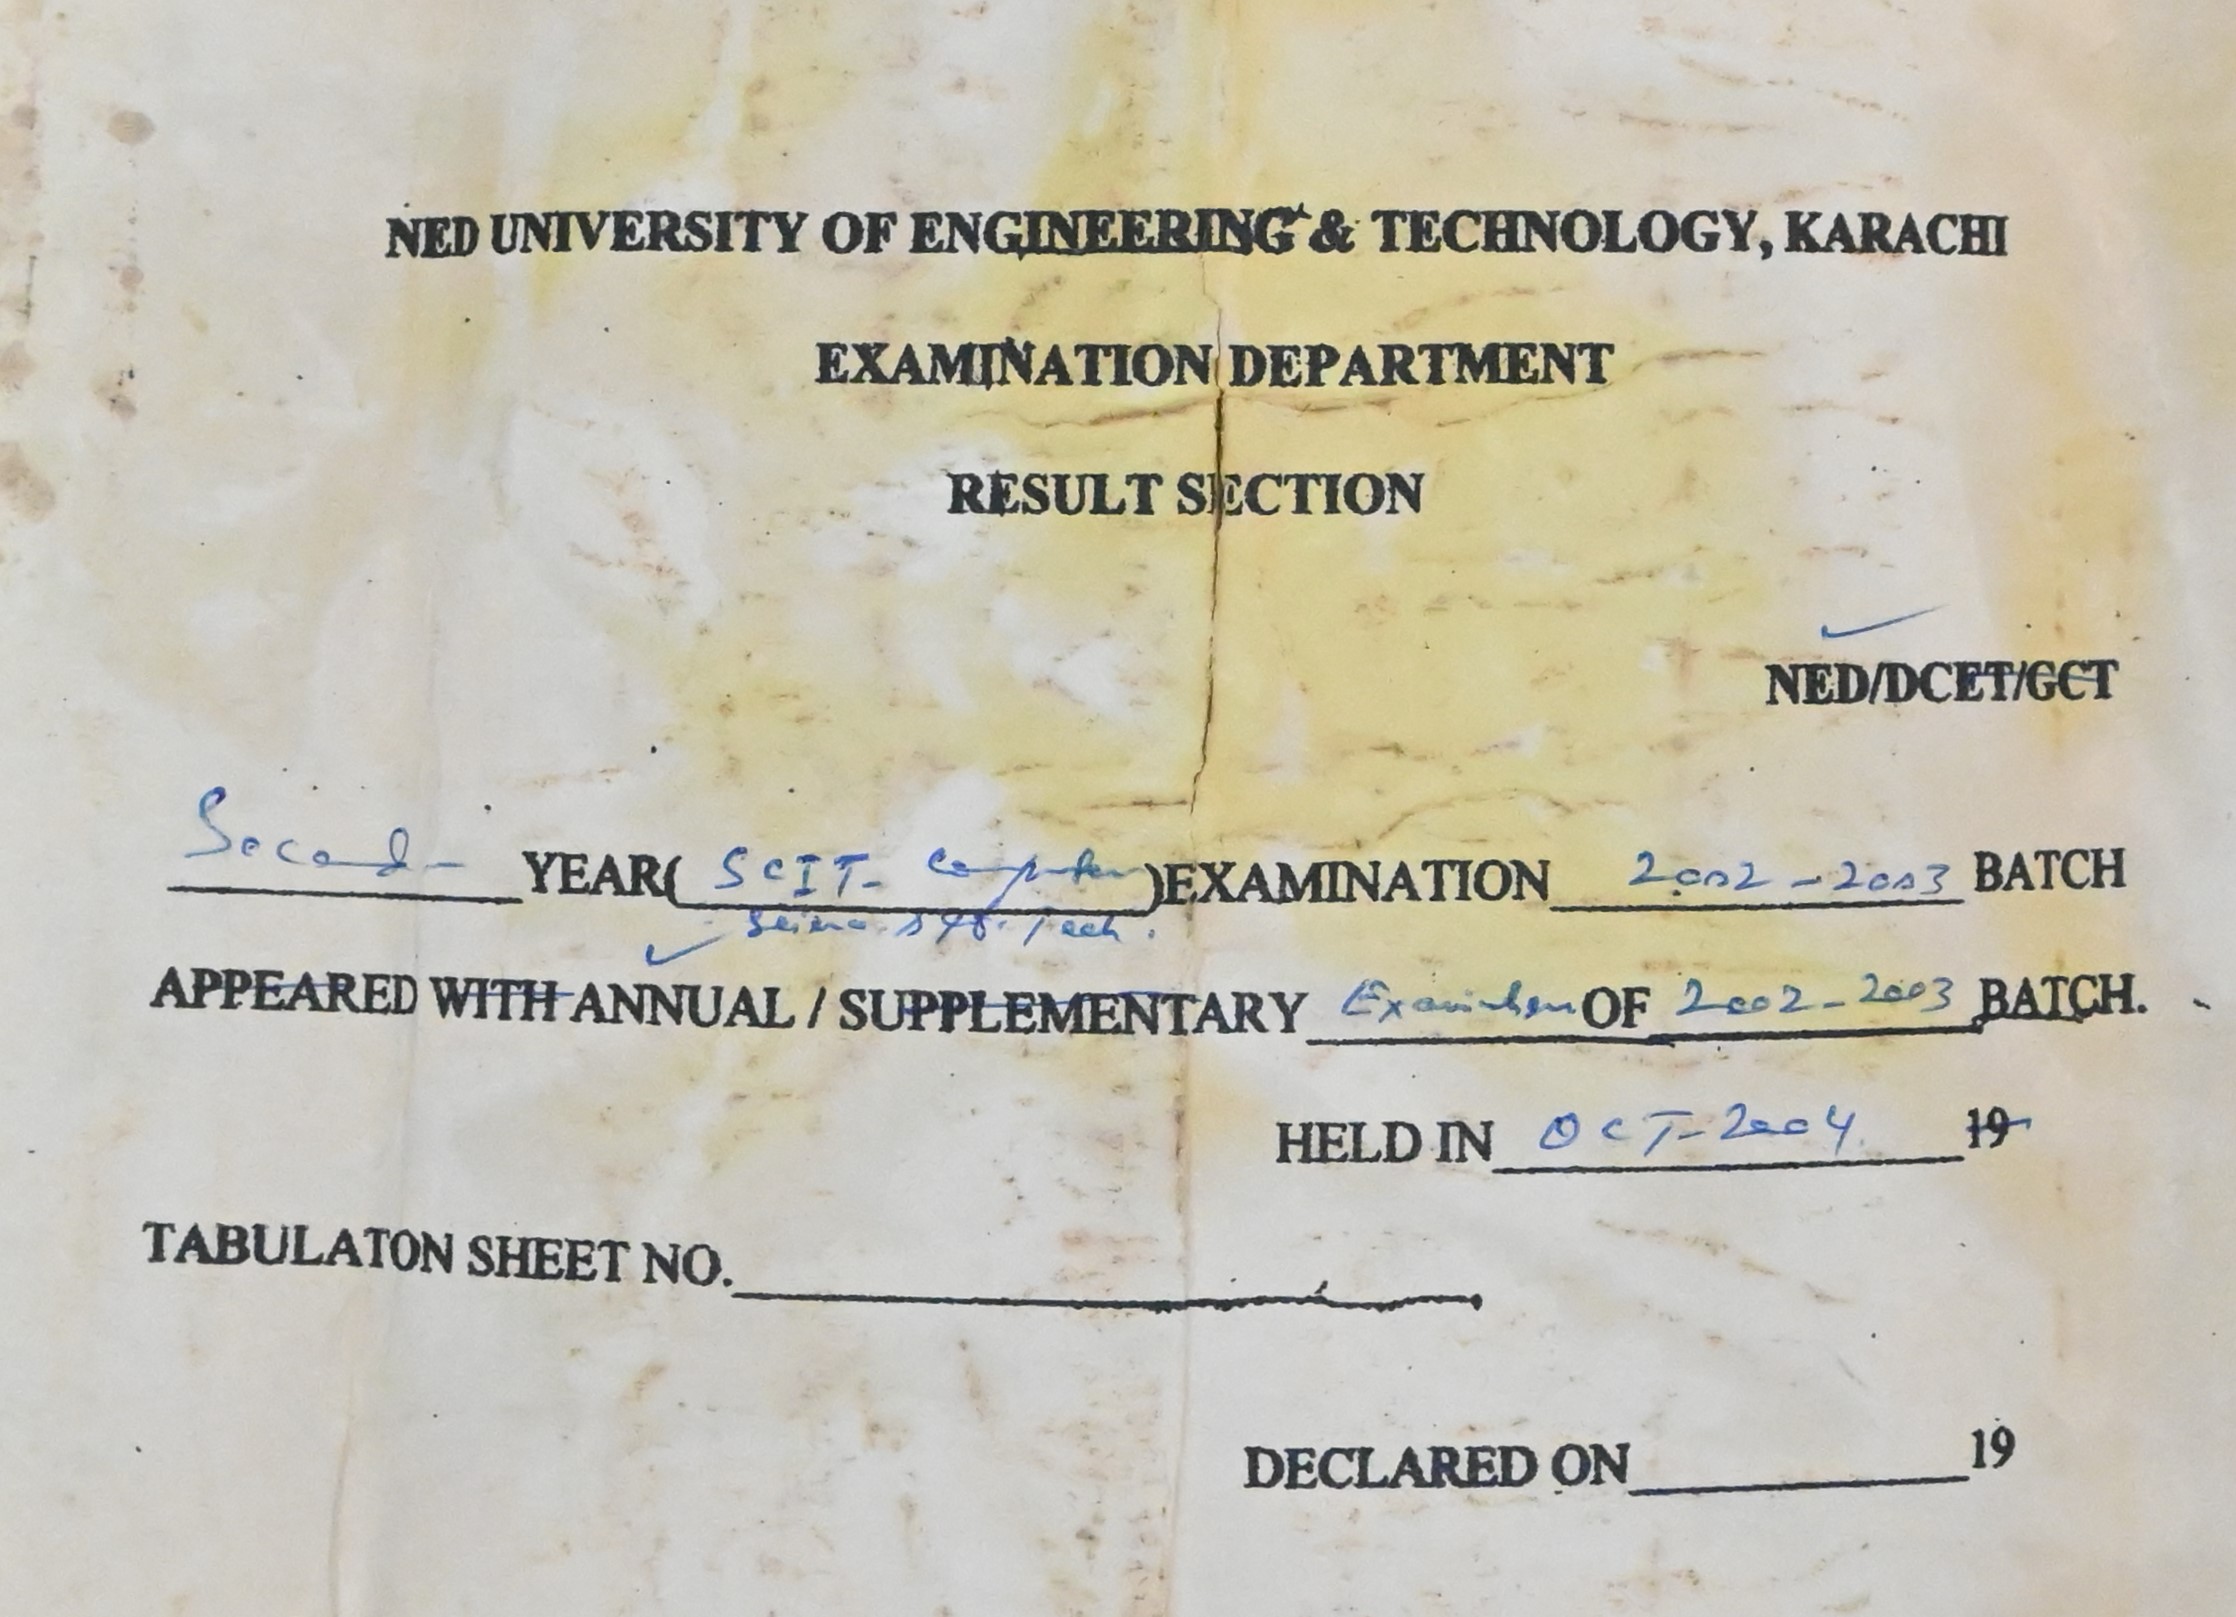 NED UNIVERSITY OF ENGINEERING & TECHNOLOGY, KARACHI
EXAMINATION DEPARTMENT
RESULT SECTION
NED/DCET/GCT
Second YEAR( SCIT- Computer )EXAMINATION 2002-2003 BATCH
Tech.
APPEARED WITH ANNUAL / SUPPLEMENTARY Examination OF 2002-2003 BATCH.
HELD IN OCT-2004 19
TABULATON SHEET NO.
DECLARED ON 19